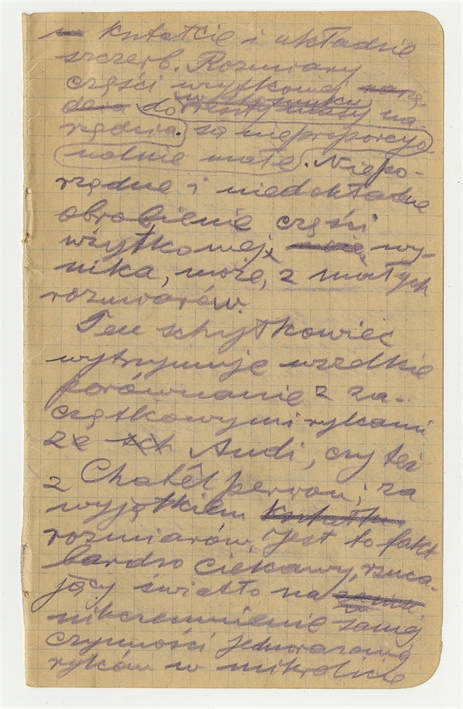 kształcie i układzie
szczerb. Rozmiary
części użytkowej
do reszty masy na-
rzędzia. są nieproporcyo-
nalnie małe. Niepo-
rządne i niedokładne
obrobienie części
użytkowej, wy-
nika, może, z małych
rozmiarów.
Ten schyłkowiec
wytrzymuje wszelkie
porównanie z za-
czątkowymi rylcami
ze Audi, czy też
z Chatêlperron, za
wyjątkiem kształtu
rozmiarów. Jest to fakt
bardzo ciekawy, rzuca-
jący światło na
nikczemnienie samej
czynności
rylców w mikrolicie